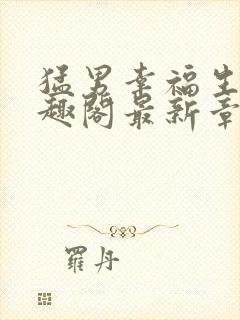 猛男幸福生
趣阁最新章
羅丹